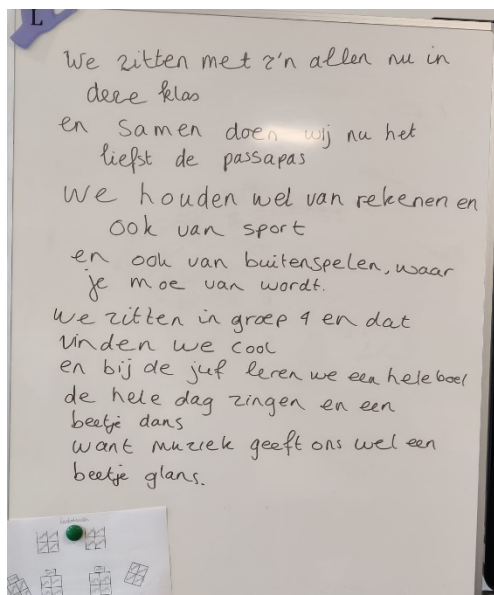 L
We zitten met z'n allen nu in
deze klas
en samen doen wij nu het
liefst de passapas
We houden wel van rekenen en
ook van sport
en ook van buitenspelen, waar
je moe van wordt.
We zitten in groep 4 en dat
vinden we cool
en bij de juf leren we een heleboel
de hele dag zingen en een
beetje dans
want muziek geeft ons wel een
beetje glans.